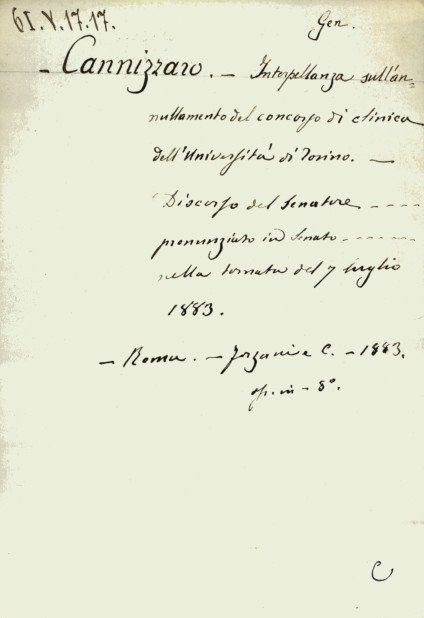 61.V.17.17.
Gen.
- Cannizzaro. - Interpellanza sull'an=
nullamento del concorso di clinica
dell'Università di Torino. -
Discorso del Senatore - - - -
pronunziato in Senato - - - - -
nella tornata del 7 luglio
1883.
- Roma. - Forzani e C. - 1883.
op. in - 8°.
C